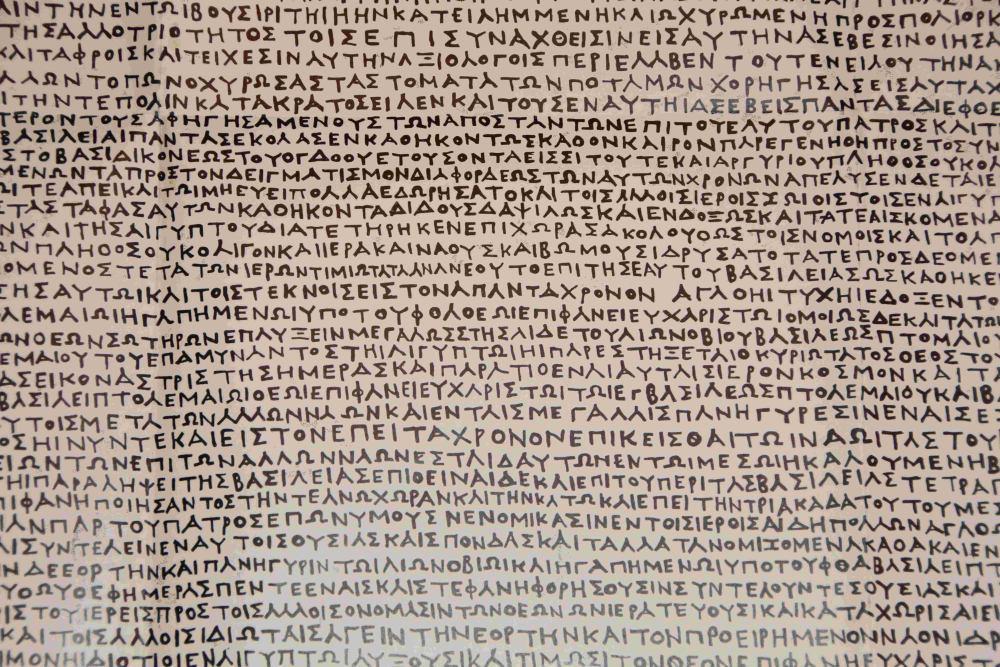 ΛΙΝΤΗΝΕΝΤΩΙΒΟΥΣΙΡΙΤΗΙΗΗΝΚΑΤΕΙΛΗΜΜΕΝΗΚΑΙΩΧΥΡΩΜΕΝΗΠΡΟΣΠΟΛΙΟΡΚ
ΤΗΣΑΛΛΟΤΡΙΟΤΗΤΟΣΤΟΙΣΕΠΙΣΥΝΑΧΘΕΙΣΙΝΕΙΣΑΥΤΗΝΑΣΕΒΕΣΙΝΟΙΗΣΑ
ΚΑΙΤΑΦΡΟΙΣΚΑΙΤΕΙΧΕΣΙΝΑΥΤΗΝΑΞΙΟΛΟΓΟΙΣΠΕΡΙΕΛΑΒΕΝΤΟΥΤΕΝΕΙΛΟΥΤΗΝΑΝ
ΛΛΩΝΤΟΠΩΝΟΧΥΡΩΣΑΣΤΑΣΤΟΜΑΤΑΤΩΝΠΟΤΑΜΩΝΧΟΡΗΓΗΣΑΣΕΙΣΑΥΤΑΧ
ΙΤΗΝΤΕΠΟΛΙΝΚΑΤΑΚΡΑΤΟΣΕΙΛΕΝΚΑΙΤΟΥΣΕΝΑΥΤΗΙΑΣΕΒΕΙΣΠΑΝΤΑΣΔΙΕΦΘΕ
ΤΕΡΟΝΤΟΥΣΑΦΗΓΗΣΑΜΕΝΟΥΣΤΩΝΑΠΟΣΤΑΝΤΩΝΕΠΙΤΟΥΕΑΥΤΟΥΠΑΤΡΟΣΚΑΙΤΗ
ΒΑΣΙΛΕΙΑΙΠΑΝΤΑΣΕΚΟΛΑΣΕΝΚΑΘΗΚΟΝΤΩΣΚΑΘΟΝΚΑΙΡΟΝΠΑΡΕΓΕΝΗΘΗΠΡΟΣΤΟΣΥΝ
ΣΤΟΒΑΣΙΛΙΚΟΝΕΩΣΤΟΥΟΓΔΟΟΥΕΤΟΥΣΟΝΤΑΕΙΣΣΙΤΟΥΤΕΚΑΙΑΡΓΥΡΙΟΥΠΛΗΘΟΣΟΥΚΟΛ
ΜΕΝΩΝΤΑΠΡΟΣΤΟΝΔΕΙΓΜΑΤΙΣΜΟΝΔΙΑΦΟΡΑΕΩΣΤΩΝΑΥΤΩΝΧΡΟΝΩΝΑΠΕΛΥΣΕΝΔΕΤΑΙΕ
ΩΙΤΕΑΠΕΙΚΑΙΤΩΙΜΗΕΥΕΙΠΟΛΛΑΕΔΩΡΗΣΑΤΟΚΑΙΤΟΙΣΑΛΛΟΙΣΙΕΡΟΙΣΖΩΙΟΙΣΤΟΙΣΕΝΑΙΓΥΠ
ΣΤΑΣΤΑΦΑΣΑΥΤΩΝΚΑΘΗΚΟΝΤΑΔΙΔΟΥΣΔΑΨΙΛΩΣΚΑΙΕΝΔΟΞΩΣΚΑΙΤΑΤΕΛΙΣΚΟΜΕΝΑ
ΝΚΑΙΤΗΣΑΙΓΥΠΤΟΥΔΙΑΤΕΤΗΡΗΚΕΝΕΠΙΧΩΡΑΣΑΚΟΛΟΥΘΩΣΤΟΙΣΝΟΜΟΙΣΚΑΙΤΟΑΠ
ΩΝΠΛΗΘΟΣΟΥΚΟΛΙΓΟΝΚΑΙΙΕΡΑΚΑΙΝΑΟΥΣΚΑΙΒΩΜΟΥΣΙΔΡΥΣΑΤΟΤΑΤΕΠΡΟΣΔΕΟΜΕΝ
ΟΜΕΝΟΣΤΕΤΑΤΩΝΙΕΡΩΝΤΙΜΙΩΤΑΤΑΑΝΑΝΕΟΥΤΟΕΠΙΤΗΣΕΑΥΤΟΥΒΑΣΙΛΕΙΑΣΩΣΚΑΘΗΚΕΝ
ΣΗΣΑΥΤΩΙΚΑΙΤΟΙΣΤΕΚΝΟΙΣΕΙΣΤΟΝΑΠΑΝΤΑΧΡΟΝΟΝ ΑΓΑΘΗΙΤΥΧΗΙΕΔΟΞΕΝΤΟ
ΛΕΜΑΙΩΙΗΓΑΠΗΜΕΝΩΙΥΠΟΤΟΥΦΘΑΘΕΩΙΕΠΙΦΑΝΕΙΕΥΧΑΡΙΣΤΩΙΟΜΟΙΩΣΔΕΚΑΙΤΑΤΩΝ
ΩΝΘΕΩΝΣΩΤΗΡΩΝΕΠΑΥΞΕΙΝΜΕΓΑΛΩΣΣΤΗΣΑΙΔΕΤΟΥΑΙΩΝΟΒΙΟΥΒΑΣΙΛΕΩΣΠΤΟΛΕΜΑΙΟΥ
ΕΜΑΙΟΥΤΟΥΕΠΑΜΥΝΑΝΤΟΣΤΗΙΑΙΓΥΠΤΩΙΗΙΠΑΡΕΣΤΗΞΕΤΑΙΟΚΥΡΙΩΤΑΤΟΣΘΕΟΣΤΟΥ
ΑΣΕΙΚΟΝΑΣΤΡΙΣΤΗΣΗΜΕΡΑΣΚΑΙΠΑΡΑΤΙΘΕΝΑΙΑΥΤΑΙΣΙΕΡΟΝΚΟΣΜΟΝΚΑΙΤΑ
ΒΑΣΙΛΕΙΠΤΟΛΕΜΑΙΩΙΘΕΩΙΕΠΙΦΑΝΕΙΕΥΧΑΡΙΣΤΩΙΤΩΙΕΓΒΑΣΙΛΕΩΣΠΤΟΛΕΜΑΙΟΥΚΑΙΒ
ΥΤΟΙΣΜΕΤΑΤΩΝΑΛΛΩΝΝΑΩΝΚΑΙΕΝΤΑΙΣΜΕΓΑΛΑΙΣΠΑΝΗΓΥΡΕΣΙΝΕΝΑΙΣΕΞ
ΟΣΗΙΝΥΝΤΕΚΑΙΕΙΣΤΟΝΕΠΕΙΤΑΧΡΟΝΟΝΕΠΙΚΕΙΣΘΑΙΤΩΙΝΑΩΙΤΑΣΤΟΥ
ΕΙΩΝΤΩΝΕΠΙΤΩΝΑΛΛΩΝΝΑΩΝΕΣΤΑΙΔΑΥΤΩΝΕΝΤΩΙΜΕΣΩΙΗΚΑΛΟΥΜΕΝΗΒ
ΤΗΙΠΑΡΑΛΗΨΕΙΤΗΣΒΑΣΙΛΕΙΑΣΕΠΙΘΕΙΝΑΙΔΕΚΑΙΕΠΙΤΟΥΠΕΡΙΤΑΣΒΑΣΙΛΕΙΑΣΤΕΤΡΑΓ
ΠΙΦΑΝΗΠΟΙΗΣΑΝΤΟΣΤΗΝΤΕΑΝΩΧΩΡΑΝΚΑΙΤΗΝΚΑΤΩΚΑΙΕΠΕΙΤΗΝΤΡΙΑΚΑΔΑΤΟΥΤΟΥΜΕΣ
ΑΝΠΑΡΤΟΥΠΑΤΡΟΣΕΠΩΝΥΜΟΥΣΝΕΝΟΜΙΚΑΣΙΝΕΝΤΟΙΣΙΕΡΟΙΣΑΙΔΗΠΟΛΛΩΝΑΓΑΘΩ
ΑΙΣΥΝΤΕΛΕΙΝΕΝΑΥΤΟΙΣΘΥΣΙΑΣΚΑΙΣΠΟΝΔΑΣΚΑΙΤΑΛΛΑΤΑΝΟΜΙΖΟΜΕΝΑΚΑΘΑΚΑΙΕΝ
ΝΔΕΕΟΡΤΗΝΚΑΙΠΑΝΗΓΥΡΙΝΤΩΙΑΙΩΝΟΒΙΩΙΚΑΙΗΓΑΠΗΜΕΝΩΙΥΠΟΤΟΥΦΘΑΒΑΣΙΛΕΙΠΤ
ΥΘΩΥΘΕΦΗΜΕΡΑΣΠΕΝΤΕΕΝΑΙΣΚΑΙΣΤΕΦΑΝΗΦΟΡΗΣΟΥΣΙΝΣΥΝΤΕΛΟΥΝΤΕΣΘΥΣΙΑΣΚΑΙ
ΡΙΣΤΟΥΙΕΡΕΙΣΠΡΟΣΤΟΙΣΑΛΛΟΙΣΟΝΟΜΑΣΙΝΤΩΝΘΕΩΝΩΝΙΕΡΑΤΕΥΟΥΣΙΚΑΙΚΑΤΑΧΩΡΙΣΑΙΕΙ
ΚΑΙΤΟΙΣΑΛΛΟΙΣΙΔΙΩΤΑΙΣΑΓΕΙΝΤΗΝΕΟΡΤΗΝΚΑΙΤΟΝΠΡΟΕΙΡΗΜΕΝΟΝΝΑΟΝΙΔΡ
ΙΜΟΝΗΙΔΙΟΤΙΟΙΕΝΑΙΓΥΠΤΩΙΑΥΞΟΥΣΙΚΑΙΤΙΜΩΣΙΤΟΝΘΕΟΝΕΠΙΦΑΝΗΕΥΧΑΡΙΣ